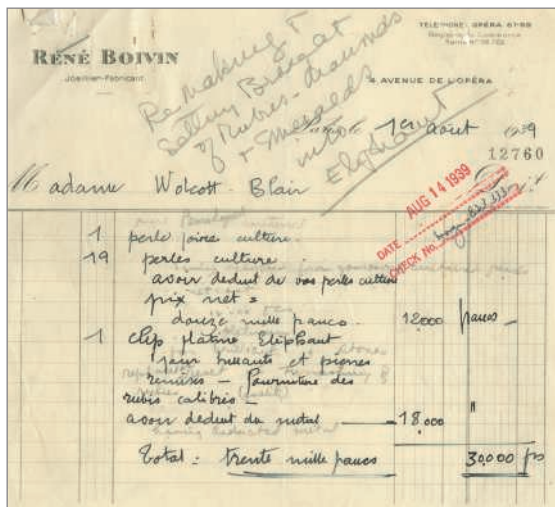 RENÉ BOIVIN
Joaillier-Fabricant
TÉLÉPHONE: OPÉRA 67-88
4, AVENUE DE L'OPÉRA
Remaking &
Setting
of Rubies - diamonds
+ emeralds
into
Elephant
Paris, le 1er août 1939
12760
Madame Wolcott-Blair
DATE AUG 14 1939
CHECK No.
1 perle poire culture.
19 perles culture
avoir déduit de vos perles culture
prix net =
douze mille francs. 12,000 francs —
1 clip platine Elephant
pour brillants et pierres
remises — Fourniture des
rubis calibrés —
avoir déduit du métal — 18,000 "
Total : trente mille francs 30,000 frs